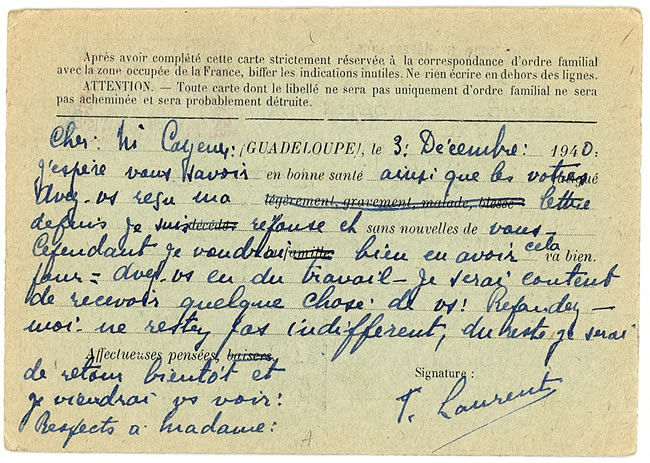 Après avoir complété cette carte strictement réservée à la correspondance d'ordre familial
avec la zone occupée de la France, biffer les indications inutiles. Ne rien écrire en dehors des lignes.
ATTENTION. — Toute carte dont le libellé ne sera pas uniquement d'ordre familial ne sera
pas acheminée et sera probablement détruite.
Cher: (GUADELOUPE), le 3: Décembre: 1940:
J'espère vous savoir en bonne santé ainsi que les votres
Avez-vs reçu ma légèrement, gravement, malade, blessé lettre
depuis je suis décédé réponse et sans nouvelles de vous-
Cependant je voudrai famille bien en avoir cela va bien.
jour= Avez-vs eu du travail- Je serai content
de recevoir quelque chose de vs! Répondez-
moi- ne restez pas indifferent, du reste je serai
Affectueuses pensées, baisers
de retour bientôt et Signature :
je viendrai vs voir: T. Laurent
Respects à madame: